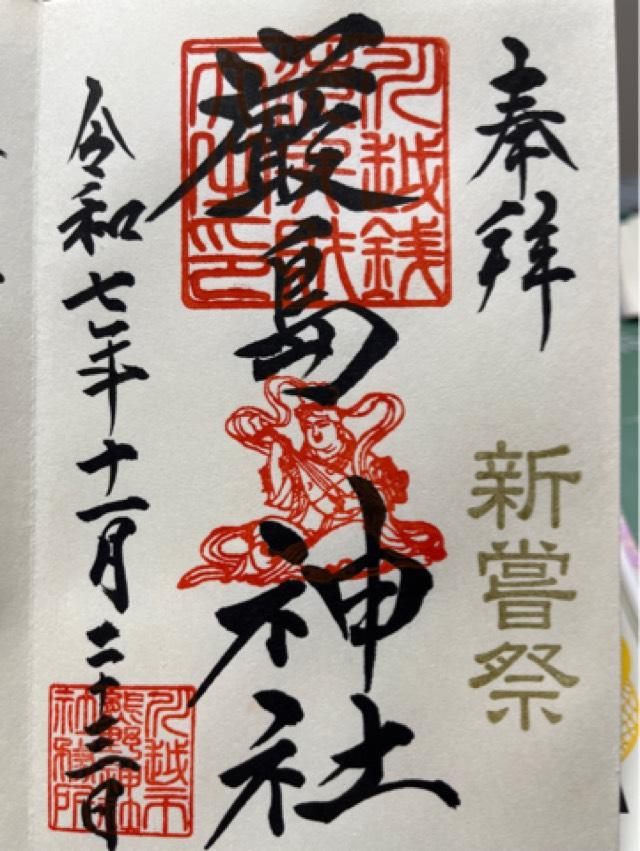 奉拝
新嘗祭
川越銭
洗弁財
天住印
厳島神社
令和七年十一月二十三日
川越市
熊野神社
社務所